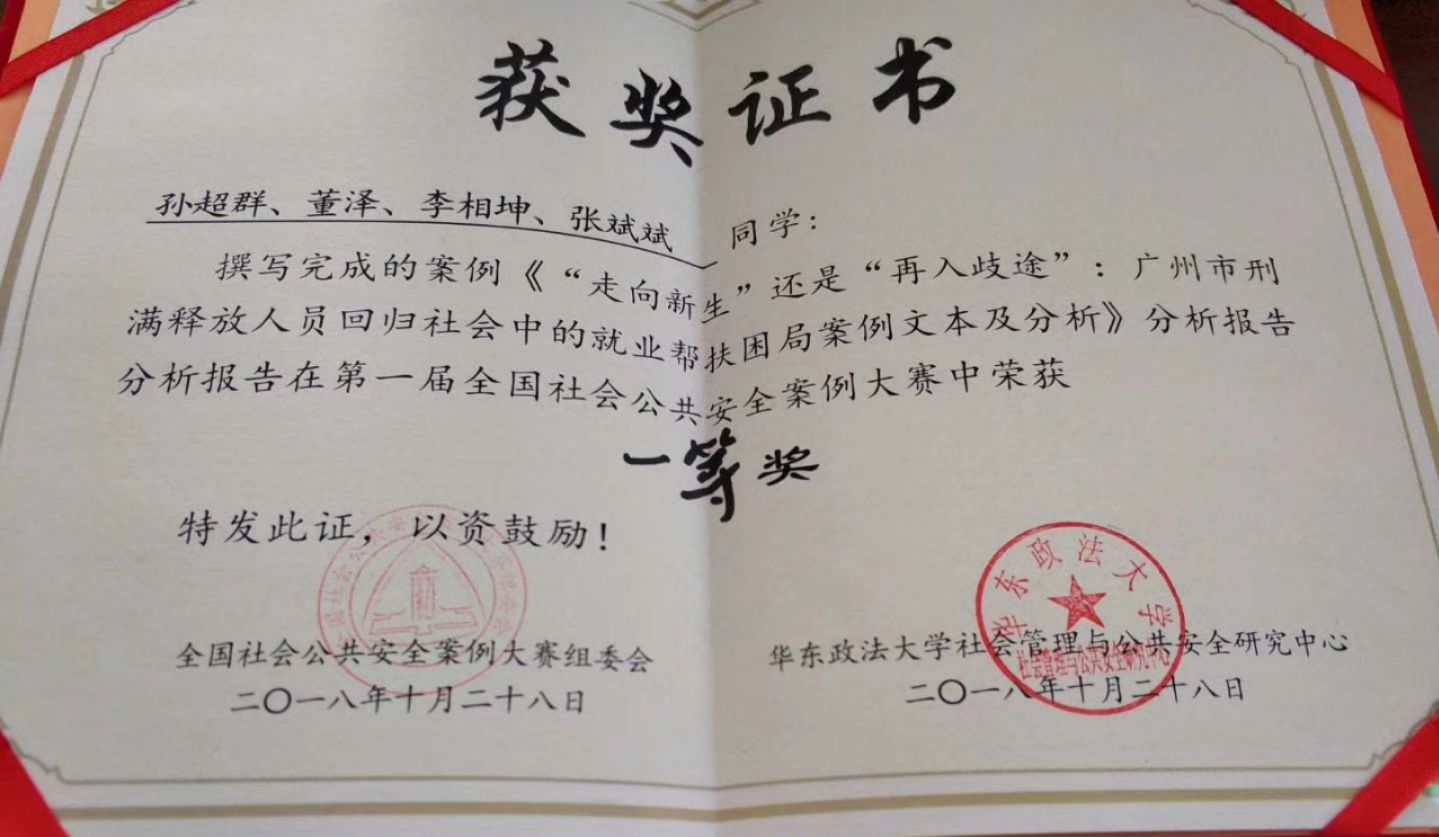 获奖证书
孙超群、董泽、李相坤、张斌斌 同学：
撰写完成的案例《“走向新生”还是“再入歧途”：广州市刑
满释放人员回归社会中的就业帮扶困局案例文本及分析》分析报告
分析报告在第一届全国社会公共安全案例大赛中荣获
一等奖
特发此证，以资鼓励！
全国社会公共安全案例大赛组委会
二〇一八年十月二十八日
华东政法大学
华东政法大学社会管理与公共安全研究中心
社会管理与公共安全研究中心
二〇一八年十月二十八日